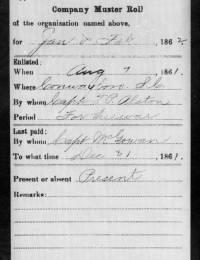 Company Muster Roll
of the organization named above,
for Jan & Feb, 1862.
Enlisted:
When Aug 7, 1861.
Where Conwayboro S.C.
By whom Capt T P Alston
Period For the war
Last paid:
By whom Capt McGowan
To what time Dec 31, 1861.
Present or absent Present
Remarks: